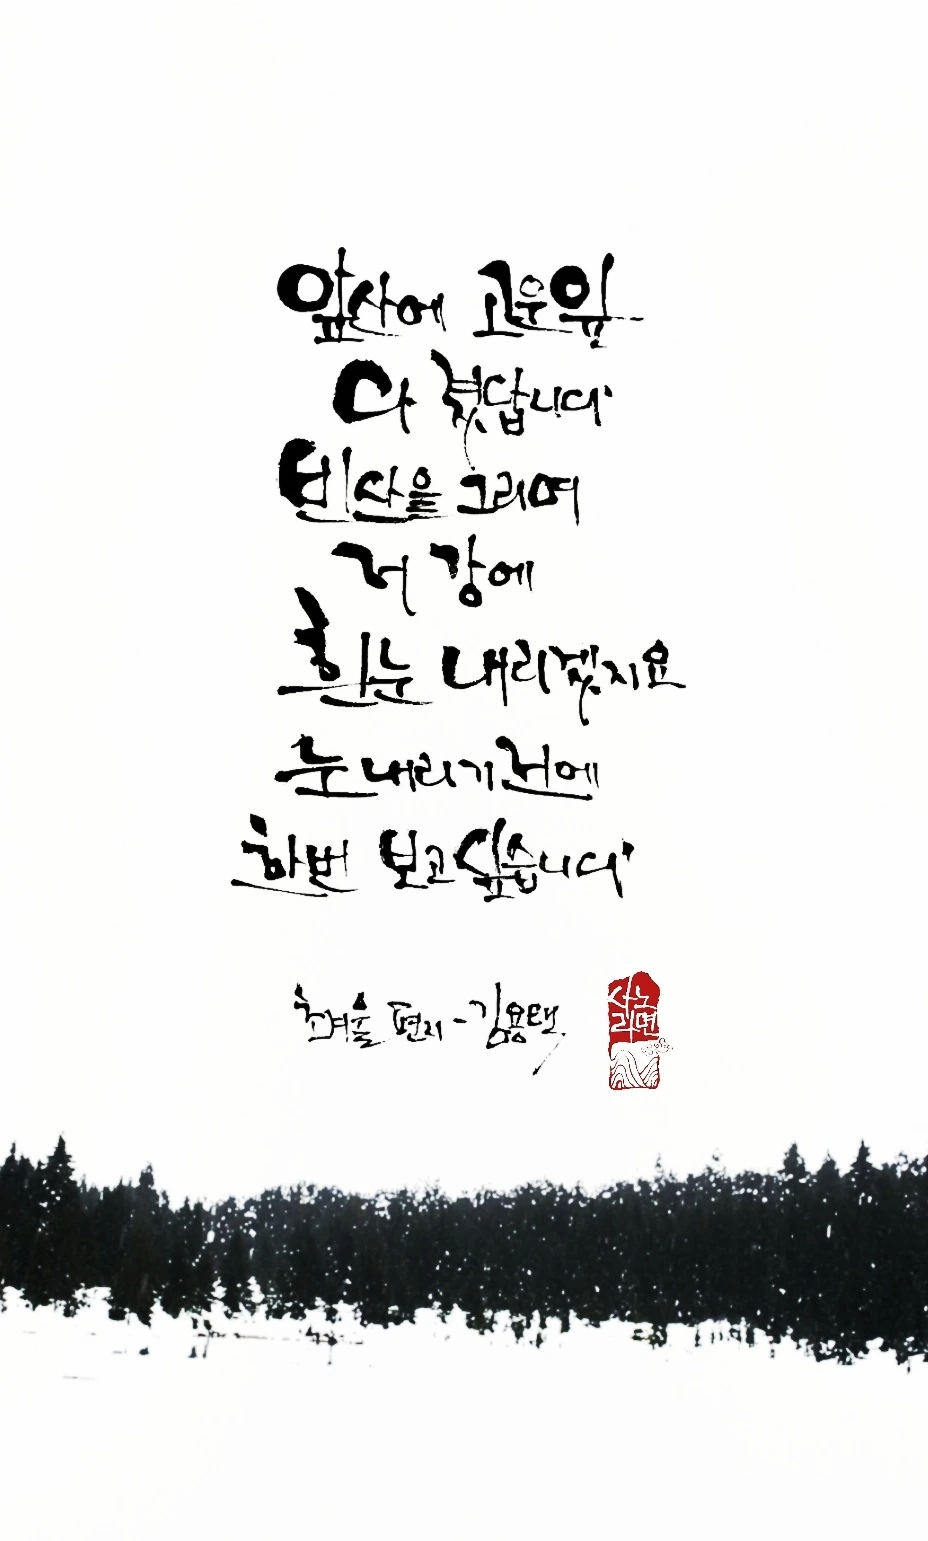 앞산에 고운잎
다 졌답니다
빈산을 그리며
저 강에
흰눈 내리겠지요
눈내리기 전에
한번 보고싶습니다
초겨울 편지 - 김용택
사노
라면